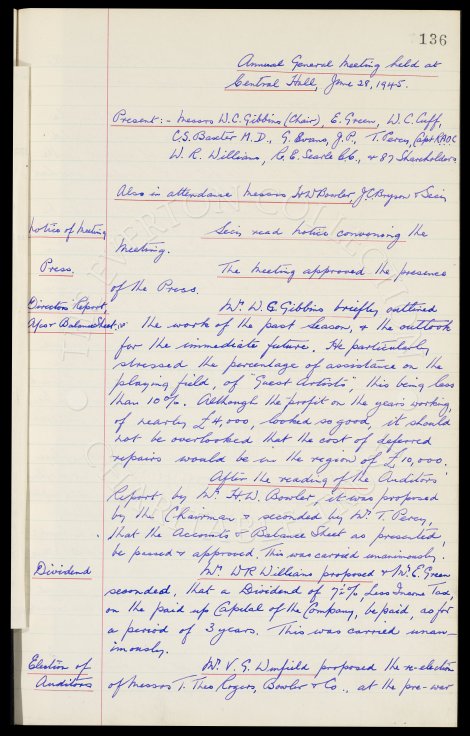 136
Annual General Meeting held at
Central Hall, June 28, 1945.
Present:- Messrs W.C. Gibbins (Chair), E. Green, W.C. Cuff,
C.S. Baxter M.D., G. Evans, J.P., T. Percy, (Capt RAOC
W.R. Williams, R.E. Searle Esq., & 87 Shareholders
Also in attendance Messrs H.W Bowler, J.C Bryson & Secy
Notice of Meeting
Secy read notice convening the
Meeting.
Press.
The Meeting approved the presence
of the Press.
Directors Report,
Mr. W.C. Gibbins briefly outlined
A/cs & Balance Sheet.
the work of the past season, & the outlook
for the immediate future. He particularly
stressed the percentage of assistance on the
playing field, of "Guest Artists", this being less
than 10%. Although the profit on the years working,
of nearly £4,000, looked so good, it should
not be overlooked that the cost of deferred
repairs would be in the region of £10,000.
After the reading of the Auditors
Report, by Mr. H.W. Bowler, it was proposed
by the Chairman & seconded by Mr. T. Percy,
that the Accounts & Balance Sheet as presented,
be passed & approved. This was carried unanimously.
Dividend
Mr. W R Williams proposed & Mr. E. Green
seconded, that a Dividend of 7½%, Less Income Tax,
on the paid up Capital of the Company, be paid, as for
a period of 3 years. This was carried unan-
imously.
Election of
Mr. V.G. Wingfield proposed the re-election
Auditors
of Messrs T. Theo Rogers, Bowler & Co., at the pre-war
EVERTON COLLECTION